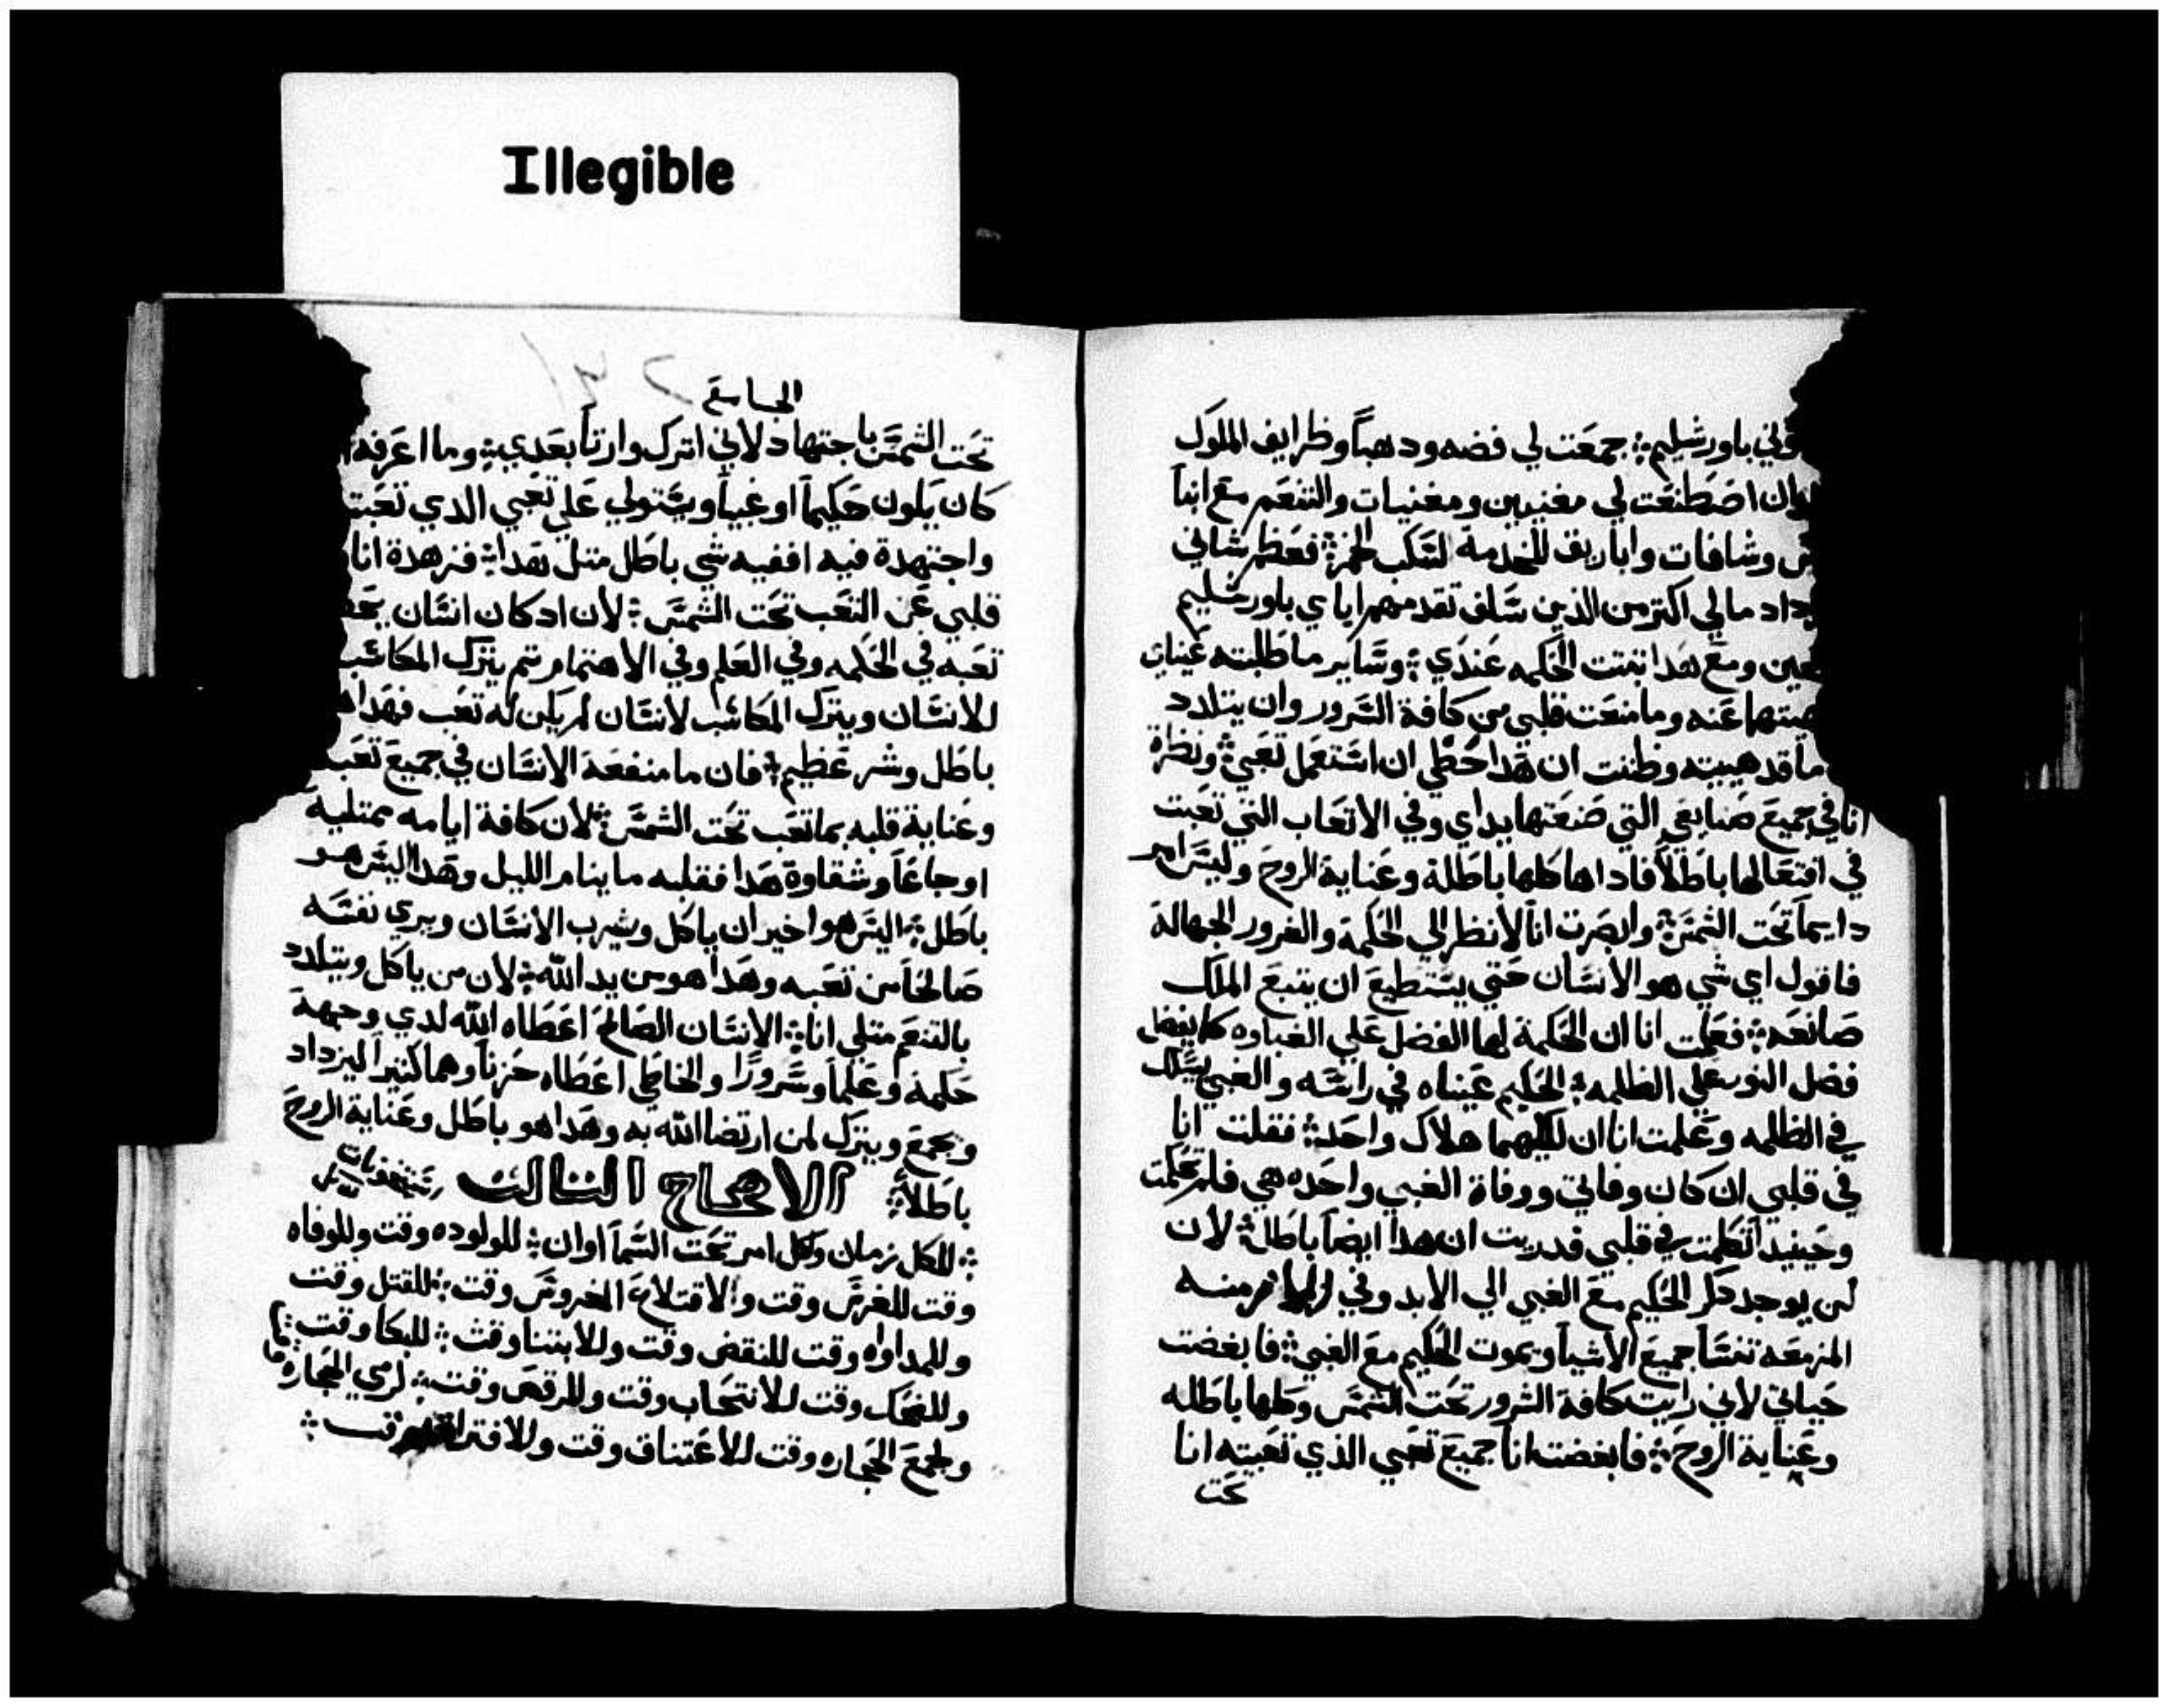 Illegible
باورشليم ܀ جمعت لي فضه ودهباً وظرايف الملوك
اصطنعت لي مغنيين ومغنيات والتنعم مع ابنآ
وشافات واباريق للخدمة لسكب الخمر ܀ فعظم شاني
مالي اكتر من الذين سلف تقدمهم اياي باورشليم
ومع هدا تبتت الحكمه عندي ܀ وساير ما طلبته عيناي
عنه وما منعت قلبي من كافة السرور وان يتلدد
ما قد هييته وظننت ان هدا حظي ان استعمل تعبي ܀ ونظرة
انا في جميع صنايعي التي صنعتها يداي وفي الاتعاب التي تعبت
في افتعالها باطلاً فادا هاكلها باطلة وعناية الروح وليس امر
دايماً تحت الشمس ܀ وابصرت انا لانظر الي الحكمة والغرور الجهالة
فاقول اي شي هو الانسان حتي يستطيع ان يتبع الملك
صانعه ܀ فعلمت انا ان الحكمة لها الفضل علي الغباوه كما يفضل
فضل النور علي الظلمه ܀ الحكيم عيناه في راسه والغبي يسلك
في الظلمه وعلمت انا ان لكليهما هلاك واحد ܀ فقلت انا
في قلبي ان كان وفاتي ووفاة الغبي واحده هي فلم تحكمت
وحينيد اتكلمت في قلبي فدريت ان هدا ايضاً باطل ܀ لان
لن يوجد دكر الحكيم مع الغبي الي الابد وفي
المزمعه تنسا جميع الاشيآ ويموت الحكيم مع الغبي ܀ فابغضت
حياتي لاني رايت كافة الشرور تحت الشمس وكلها باطله
وعناية الروح ܀ فابغضت انا جميع تعبي الذي تعبته انا
تحت
الجامع
تحت الشمس باجتهاد لاني اترك وارتاً بعدي ܀ وما اعرفه
كان يكون حكيماً او غبياً ويستولي علي تعبي الدي تعبت
واجتهدة فيه اففيه شي باطل متل هدا ܀ فزهدة انا
قلبي عن التعب تحت الشمس ܀ لان اد كان انسان
تعبه في الحكمه وفي العلم وفي الاهتمام تم يترك المكاسب
للانسان ويترك المكاسب لانسان لم يكن له تعب فهدا
باطل وشر عظيم ܀ فان ما منفعة الانسان في جميع تعبه
وعناية قلبه بما تعب تحت الشمس ܀ لان كافة ايامه ممتلية
اوجاعاً وشقاوة هدا فقلبه ما ينام الليل وهدا اليس هو
باطل ܀ اليس هوا خير ان ياكل ويشرب الانسان ويري نفسه
صالحاً من تعبه وهدا هو من يد الله ܀ لان من ياكل ويتلدد
بالتنعم متلي انا ܀ الانسان الصالح اعطاه الله لدي وجهة
حكمة وعلماً وسروراً والخاطي اعطاه حزناً وهماً كتيراً ليزداد
ويجمع ويترك لمن ارتضا الله به وهدا هو باطل وعناية الروح
باطلاً ܀ الاصحاح التالت
܀ للكل زمان ولكل امر تحت السمآ اوان ܀ للولوده وقت وللوفاه
وقت للغرس وقت والاقتلاع المغروس وقت ܀ للقتل وقت
وللمداواه وقت للنقض وقت وللابتنا وقت ܀ للبكا وقت
وللضحك وقت للانتحاب وقت وللرقص وقت ܀ لرمي الحجاره
ولجمع الحجاره وقت للاعتناق وقت وللافتراق وقت ܀